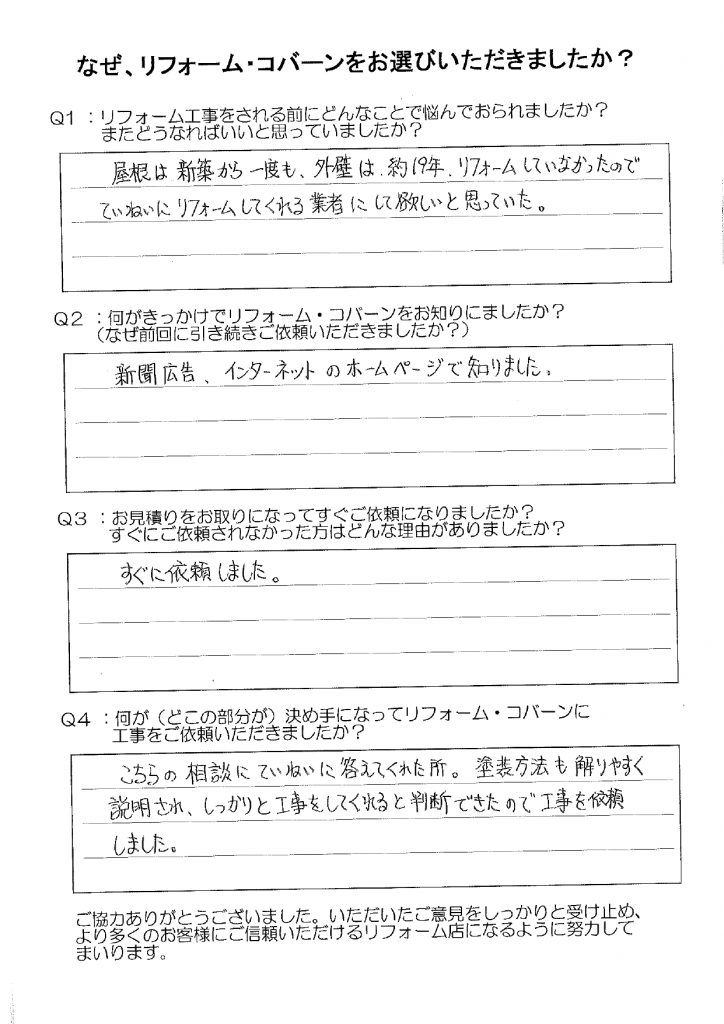 なぜ、リフォーム・コバーンをお選びいただきましたか？
Q1 ：リフォーム工事をされる前にどんなことで悩んでおられましたか？
またどうなればいいと思っていましたか？
屋根は新築から一度も、外壁は、約19年、リフォームしていなかったので
ていねいにリフォームしてくれる業者にして欲しいと思っていた。
Q2 ：何がきっかけでリフォーム・コバーンをお知りにましたか？
（なぜ前回に引き続きご依頼いただきましたか？）
新聞広告、インターネットのホームページで知りました。
Q3 ：お見積りをお取りになってすぐご依頼になりましたか？
すぐにご依頼されなかった方はどんな理由がありましたか？
すぐに依頼しました。
Q4 ：何が（どこの部分が）決め手になってリフォーム・コバーンに
工事をご依頼いただきましたか？
こちらの相談にていねいに答えてくれた所。塗装方法も解りやすく
説明され、しっかりと工事をしてくれると判断できたので工事を依頼
しました。
ご協力ありがとうございました。いただいたご意見をしっかりと受け止め、
より多くのお客様にご信頼いただけるリフォーム店になるように努力して
まいります。